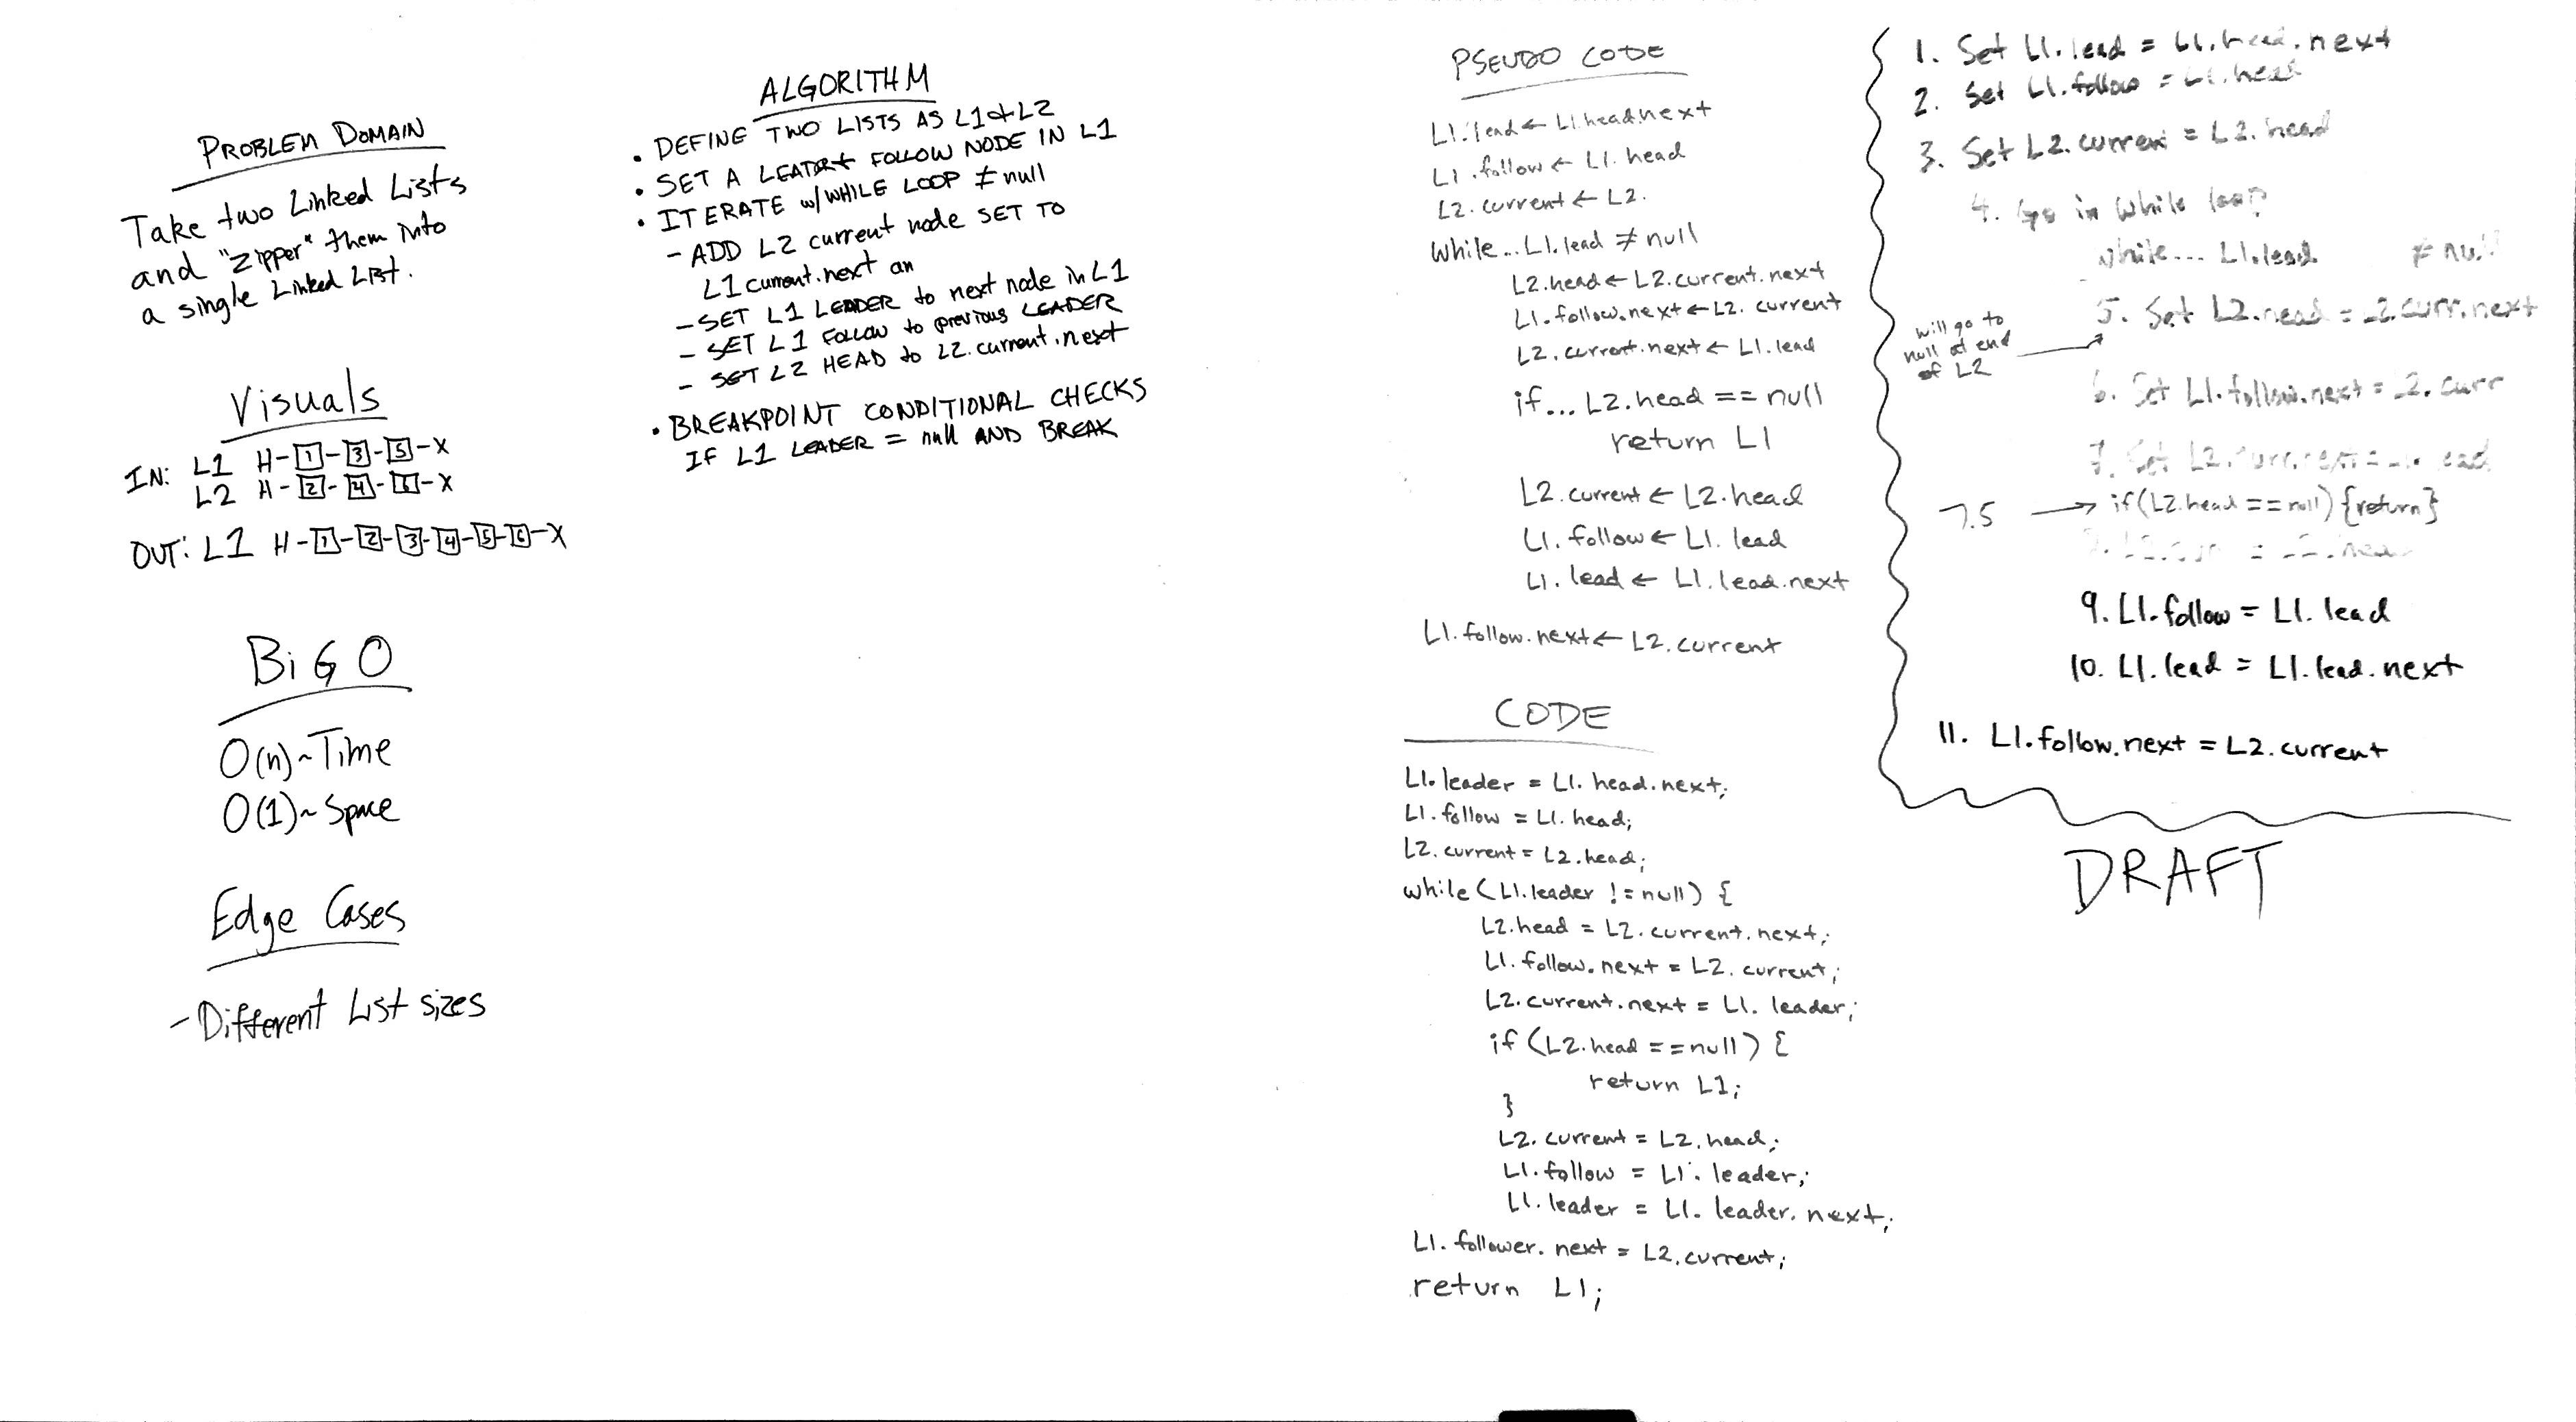 PROBLEM DOMAIN
Take two Linked Lists
and "zipper" them into
a single Linked List.
Visuals
IN: L1 H-1-3-5-X
L2 H-2-4-6-X
OUT: L1 H-1-2-3-4-5-6-X
BiG O
O(n)~Time
O(1)~Space
Edge Cases
- Different List sizes
ALGORITHM
• DEFINE TWO LISTS AS L1 & L2
• SET A FOLLOW NODE IN L1
• ITERATE w/WHILE LOOP ≠ null
- ADD L2 current node SET TO
L1 current.next an
- SET L1 LEADER to next node in L1
- SET L1 FOLLOW to previous LEADER
- SET L2 HEAD to L2.current.next
• BREAKPOINT CONDITIONAL CHECKS
IF L1 LEADER = null AND BREAK
PSEUDO CODE
L1.lead ← L1.head.next
L1.follow ← L1.head
L2.current ← L2.
While... L1.lead ≠ null
L2.head ← L2.current.next
L1.follow.next ← L2.current
L2.current.next ← L1.lead
if... L2.head == null
return L1
L2.current ← L2.head
L1.follow ← L1.lead
L1.lead ← L1.lead.next
L1.follow.next ← L2.current
CODE
L1.leader = L1.head.next;
L1.follow = L1.head;
L2.current = L2.head;
while (L1.leader != null) {
L2.head = L2.current.next;
L1.follow.next = L2.current;
L2.current.next = L1.leader;
if (L2.head == null) {
return L1;
}
L2.current = L2.head;
L1.follow = L1.leader;
L1.leader = L1.leader.next;
L1.follower.next = L2.current;
return L1;
1. Set L1.lead = L1.head.next
2. Set L1.follow = L1.head
3. Set L2.current = L2.head
4. Go in while loop
while... L1.lead ≠ null
5. Set L2.head = L2.curr.next
will go to
null at end
of L2
6. Set L1.follow.next = L2.curr
7. Set L2.curr.next = lead
7.5 → if(L2.head == null) {return}
L2.curr = L2.head
9. L1.follow = L1.lead
10. L1.lead = L1.lead.next
11. L1.follow.next = L2.current
DRAFT